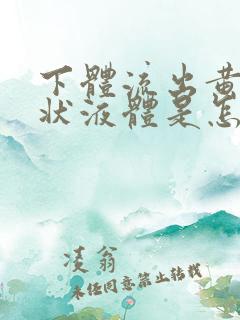 下體流出黃
狀液體是怎
凌翁
未经同意禁止转载